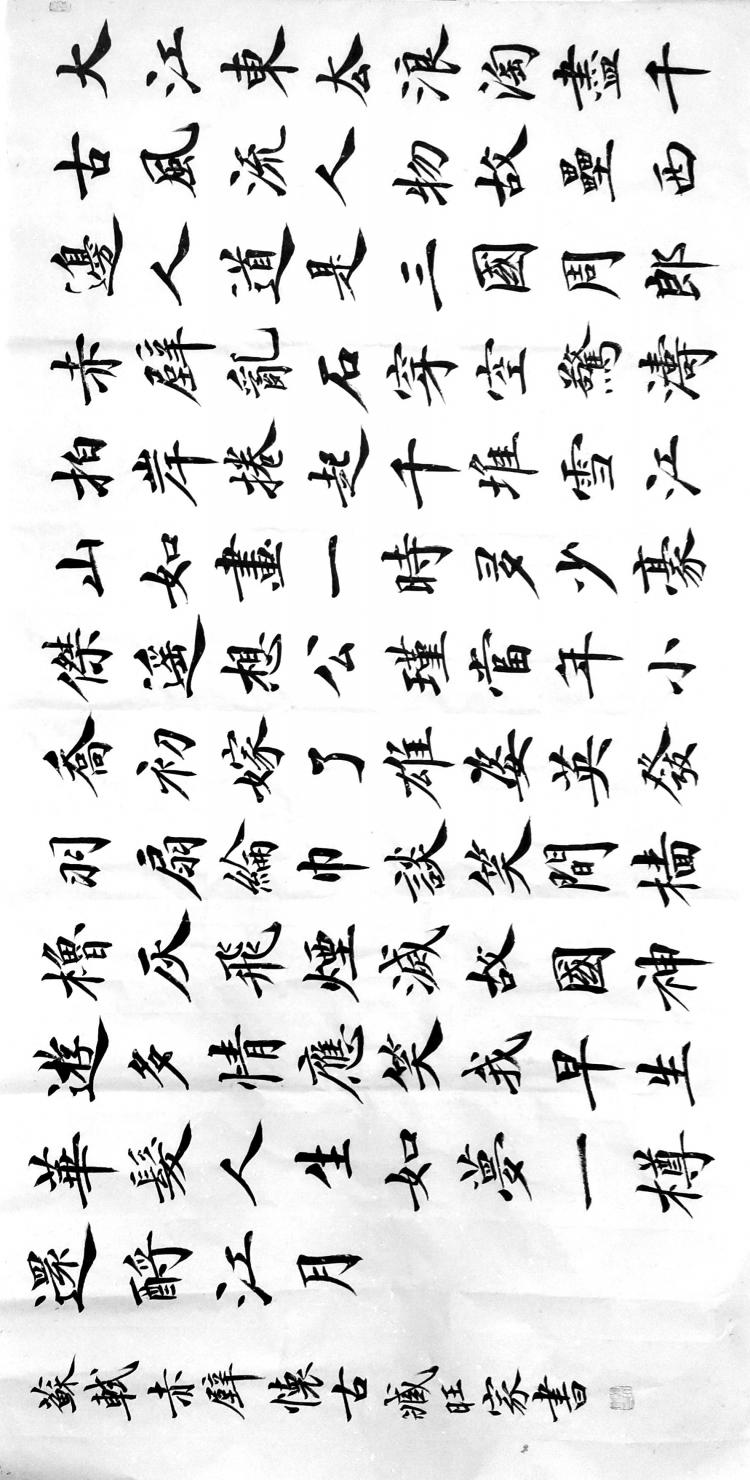 大江東去浪淘盡千
古風流人物故壘西
邊人道是三國周郎
赤壁亂石穿空驚濤
拍岸捲起千堆雪江
山如畫一時多少豪
傑遥想公瑾當年小
喬初嫁了雄姿英發
羽扇綸巾談笑間檣
櫓灰飛煙滅故國神
遊多情應笑我早生
華髮人生如夢一樽
還酹江月
蘇軾赤壁懷古 臧旺家書